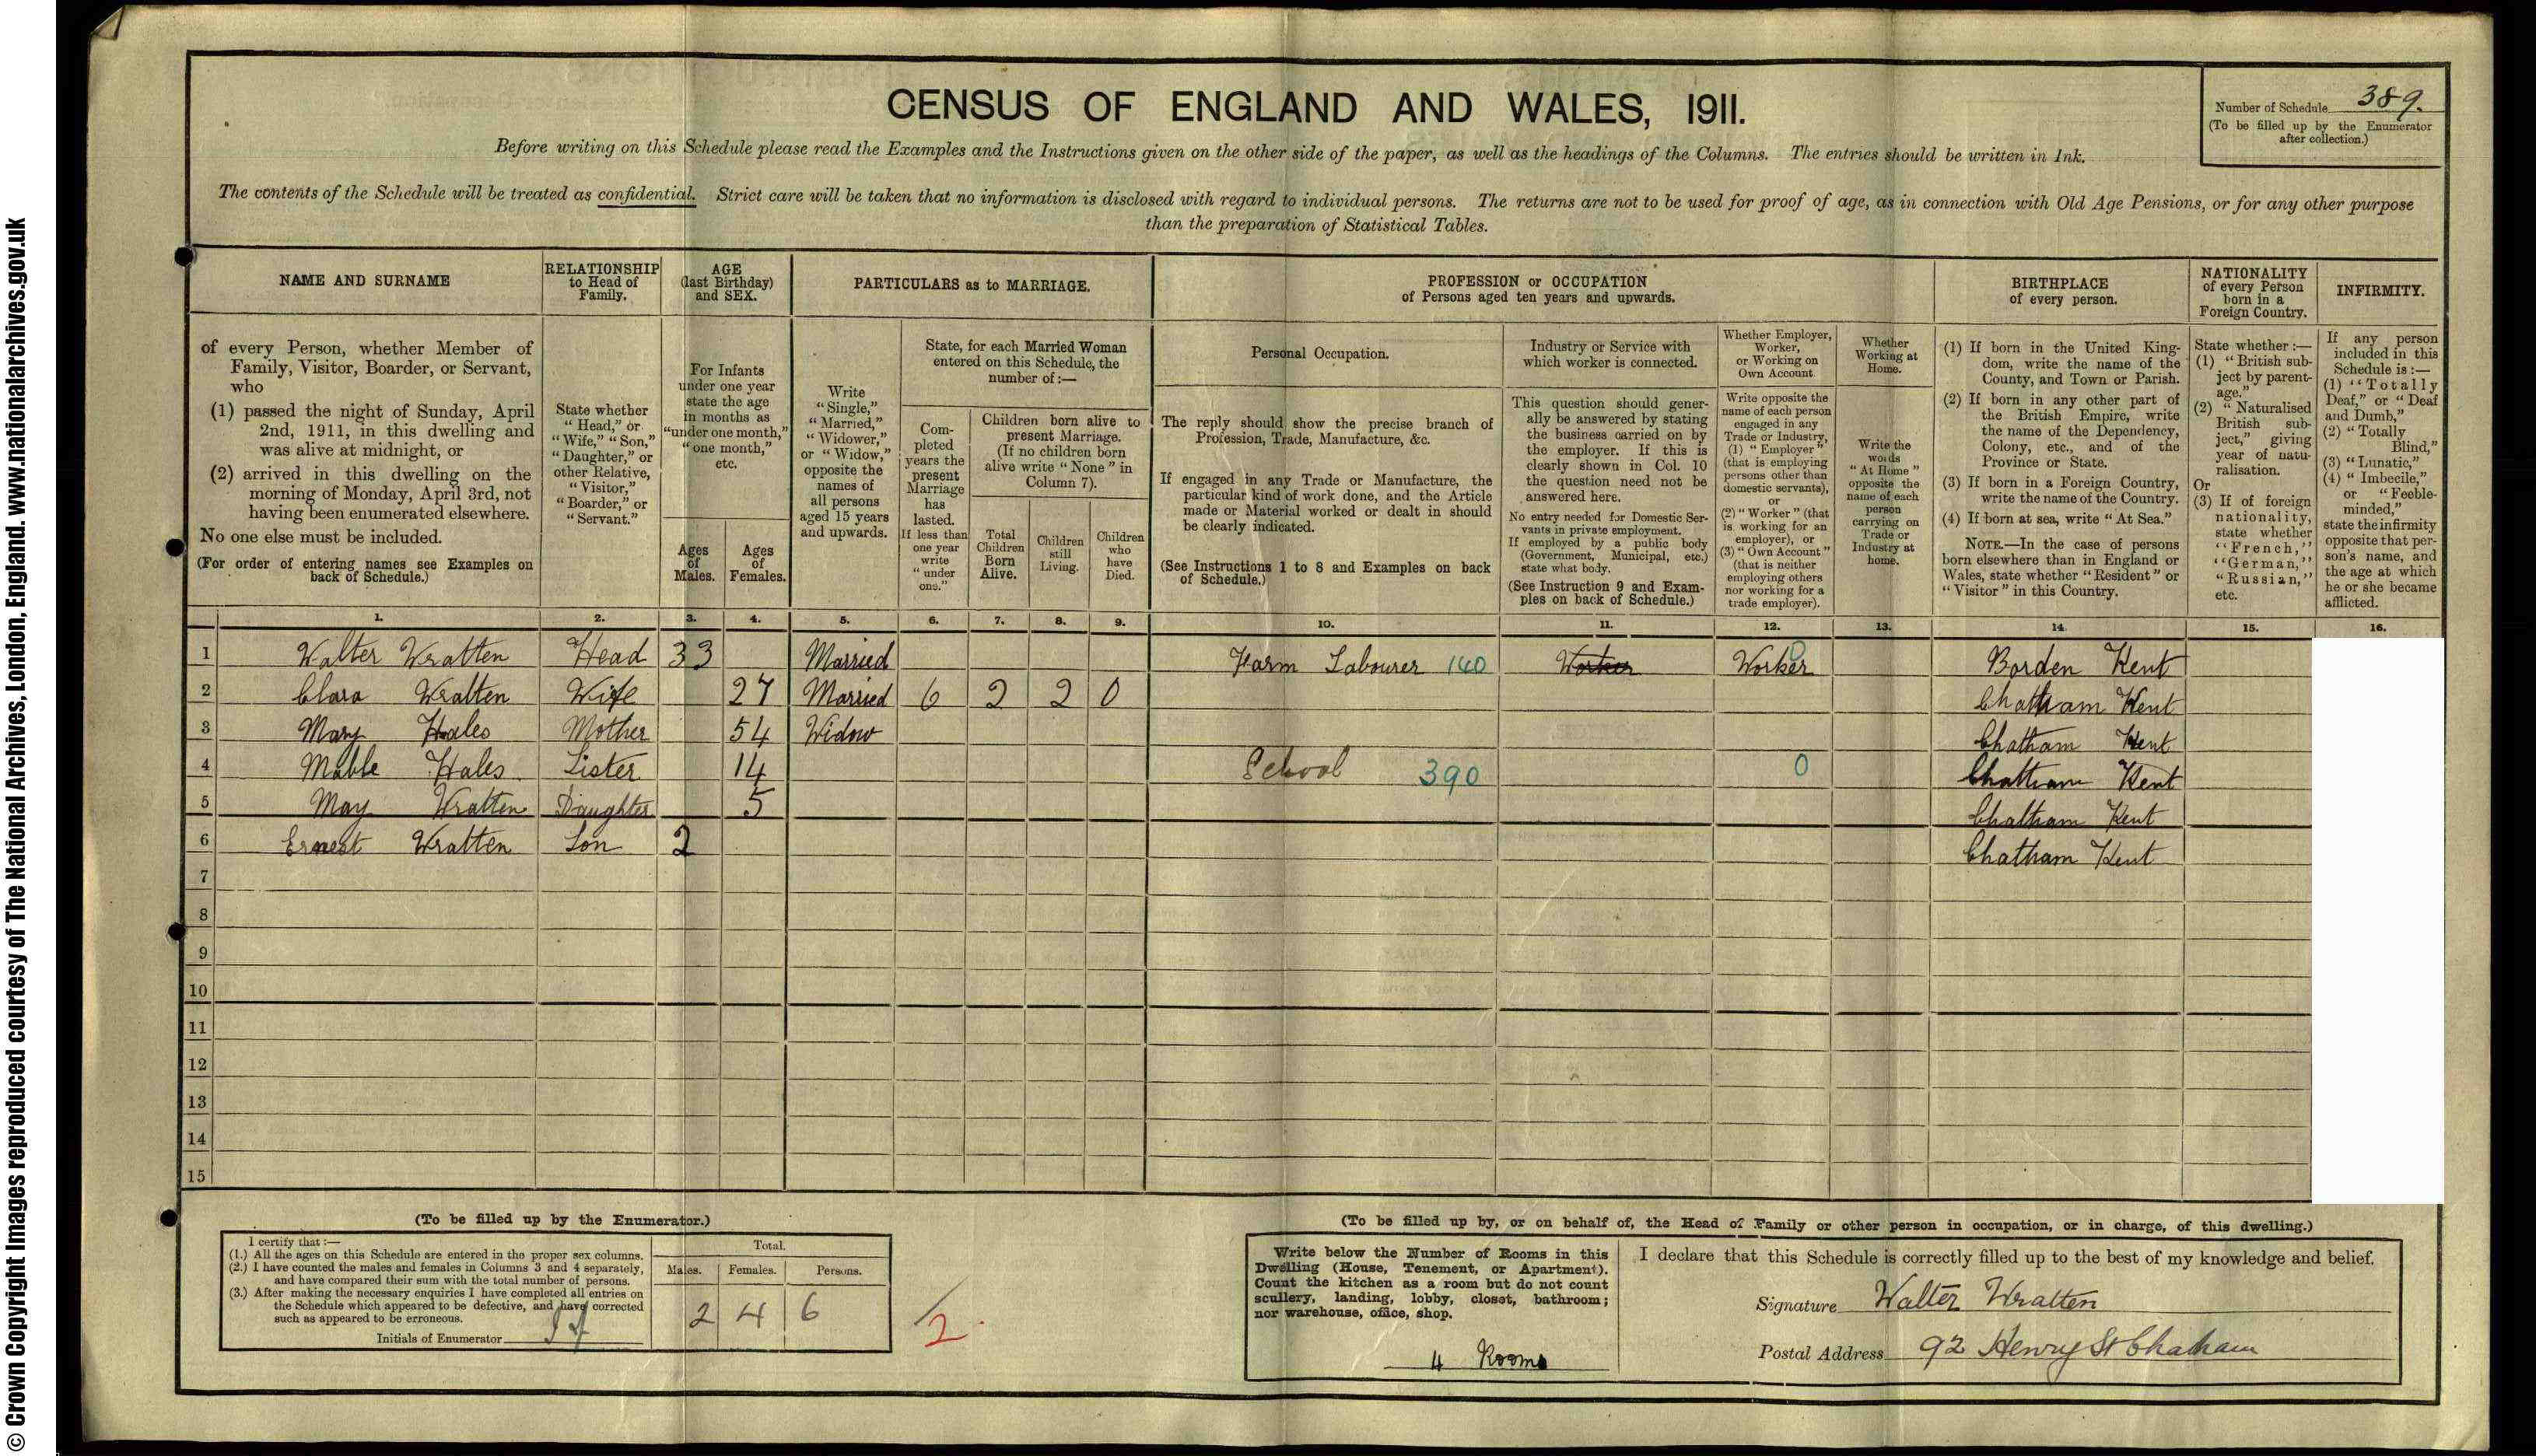 © Crown Copyright Images reproduced courtesy of The National Archives, London, England. www.nationalarchives.gov.uk
CENSUS OF ENGLAND AND WALES, 1911.
Number of Schedule 389.
(To be filled up by the Enumerator
after collection.)
Before writing on this Schedule please read the Examples and the Instructions given on the other side of the paper, as well as the headings of the Columns. The entries should be written in Ink.
The contents of the Schedule will be treated as confidential. Strict care will be taken that no information is disclosed with regard to individual persons. The returns are not to be used for proof of age, as in connection with Old Age Pensions, or for any other purpose
than the preparation of Statistical Tables.
NAME AND SURNAME
RELATIONSHIP
to Head of
Family.
AGE
(last Birthday)
and SEX.
PARTICULARS as to MARRIAGE.
PROFESSION or OCCUPATION
of Persons aged ten years and upwards.
BIRTHPLACE
of every person.
NATIONALITY
of every Person
born in a
Foreign Country.
INFIRMITY.
of every Person, whether Member of
Family, Visitor, Boarder, or Servant,
who
(1) passed the night of Sunday, April
2nd, 1911, in this dwelling and
was alive at midnight, or
(2) arrived in this dwelling on the
morning of Monday, April 3rd, not
having been enumerated elsewhere.
No one else must be included.
(For order of entering names see Examples on
back of Schedule.)
State whether
"Head," or
"Wife," "Son,"
"Daughter," or
other Relative,
"Visitor,"
"Boarder," or
"Servant."
For Infants
under one year
state the age
in months as
"under one month,"
"one month,"
etc.
Ages
of
Males.
Ages
of
Females.
Write
"Single,"
"Married,"
"Widower,"
or "Widow,"
opposite the
names of
all persons
aged 15 years
and upwards.
State, for each Married Woman
entered on this Schedule, the
number of:—
Com-
pleted
years the
present
Marriage
has
lasted.
If less than
one year
write
"under
one."
Children born alive to
present Marriage.
(If no children born
alive write "None" in
Column 7).
Total
Children
Born
Alive.
Children
still
Living.
Children
who
have
Died.
Personal Occupation.
The reply should show the precise branch of
Profession, Trade, Manufacture, &c.
If engaged in any Trade or Manufacture, the
particular kind of work done, and the Article
made or Material worked or dealt in should
be clearly indicated.
(See Instructions 1 to 8 and Examples on back
of Schedule.)
Industry or Service with
which worker is connected.
This question should gener-
ally be answered by stating
the business carried on by
the employer. If this is
clearly shown in Col. 10
the question need not be
answered here.
No entry needed for Domestic Ser-
vants in private employment.
If employed by a public body
(Government, Municipal, etc.)
state what body.
(See Instruction 9 and Exam-
ples on back of Schedule.)
Whether Employer,
Worker,
or Working on
Own Account.
Write opposite the
name of each person
engaged in any
Trade or Industry,
(1) "Employer"
(that is employing
persons other than
domestic servants),
or
(2) "Worker" (that
is working for an
employer), or
(3) "Own Account"
(that is neither
employing others
nor working for a
trade employer).
Whether
Working at
Home.
Write the
words
"At Home"
opposite the
name of each
person
carrying on
Trade or
Industry at
home.
(1) If born in the United King-
dom, write the name of the
County, and Town or Parish.
(2) If born in any other part of
the British Empire, write
the name of the Dependency,
Colony, etc., and of the
Province or State.
(3) If born in a Foreign Country,
write the name of the Country.
(4) If born at sea, write "At Sea."
NOTE.—In the case of persons
born elsewhere than in England or
Wales, state whether "Resident" or
"Visitor" in this Country.
State whether:—
(1) "British sub-
ject by parent-
age."
(2) "Naturalised
British sub-
ject," giving
year of natu-
ralisation.
Or
(3) If of foreign
nationality,
state whether
"French,"
"German,"
"Russian,"
etc.
If any person
included in this
Schedule is:—
(1) "Totally
Deaf," or "Deaf
and Dumb,"
(2) "Totally
Blind,"
(3) "Lunatic,"
(4) "Imbecile,"
or "Feeble-
minded,"
state the infirmity
opposite that per-
son's name, and
the age at which
he or she became
afflicted.
1. 2. 3. 4. 5. 6. 7. 8. 9. 10. 11. 12. 13. 14. 15. 16.
1 Walter Wratten Head 33 Married Farm Labourer 140 Worker Worker 0 Borden Kent
2 Clara Wratten Wife 27 Married 6 2 2 0 Chatham Kent
3 Mary Hales Mother 54 Widow Chatham Kent
4 Mable Hales Sister 14 School 390 0 Chatham Kent
5 May Wratten Daughter 5 Chatham Kent
6 Ernest Wratten Son 2 Chatham Kent
7
8
9
10
11
12
13
14
15
(To be filled up by the Enumerator.)
I certify that:—
(1.) All the ages on this Schedule are entered in the proper sex columns.
(2.) I have counted the males and females in Columns 3 and 4 separately,
and have compared their sum with the total number of persons.
(3.) After making the necessary enquiries I have completed all entries on
the Schedule which appeared to be defective, and have corrected
such as appeared to be erroneous.
Initials of Enumerator
Total.
Males. Females. Persons.
2 4 6
2
(To be filled up by, or on behalf of, the Head of Family or other person in occupation, or in charge, of this dwelling.)
Write below the Number of Rooms in this
Dwelling (House, Tenement, or Apartment).
Count the kitchen as a room but do not count
scullery, landing, lobby, closet, bathroom;
nor warehouse, office, shop.
4 Rooms
I declare that this Schedule is correctly filled up to the best of my knowledge and belief.
Signature Walter Wratten
Postal Address 92 Henry St Chatham